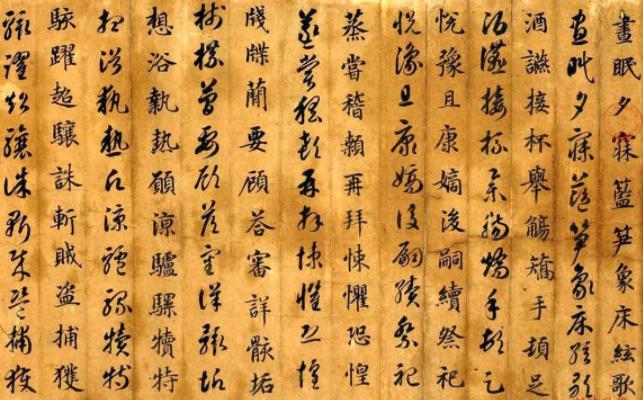 晝眠夕寐藍笋象床絃歌
晝眠夕寐藍笋象床絃歌
酒讌接杯舉觴矯手頓足
酒讌接杯舉觴矯手頓足
悅豫且康嫡後嗣續祭祀
悅豫且康嫡後嗣續祭祀
蒸嘗稽顙再拜悚懼恐惶
蒸嘗稽顙再拜悚懼恐惶
牋牒簡要顧答審詳骸垢
牋牒簡要顧答審詳骸垢
想浴執熱願涼驢騾犢特
想浴執熱願涼驢騾犢特
駭躍超驤誅斬賊盜捕獲
駭躍超驤誅斬賊盜捕獲